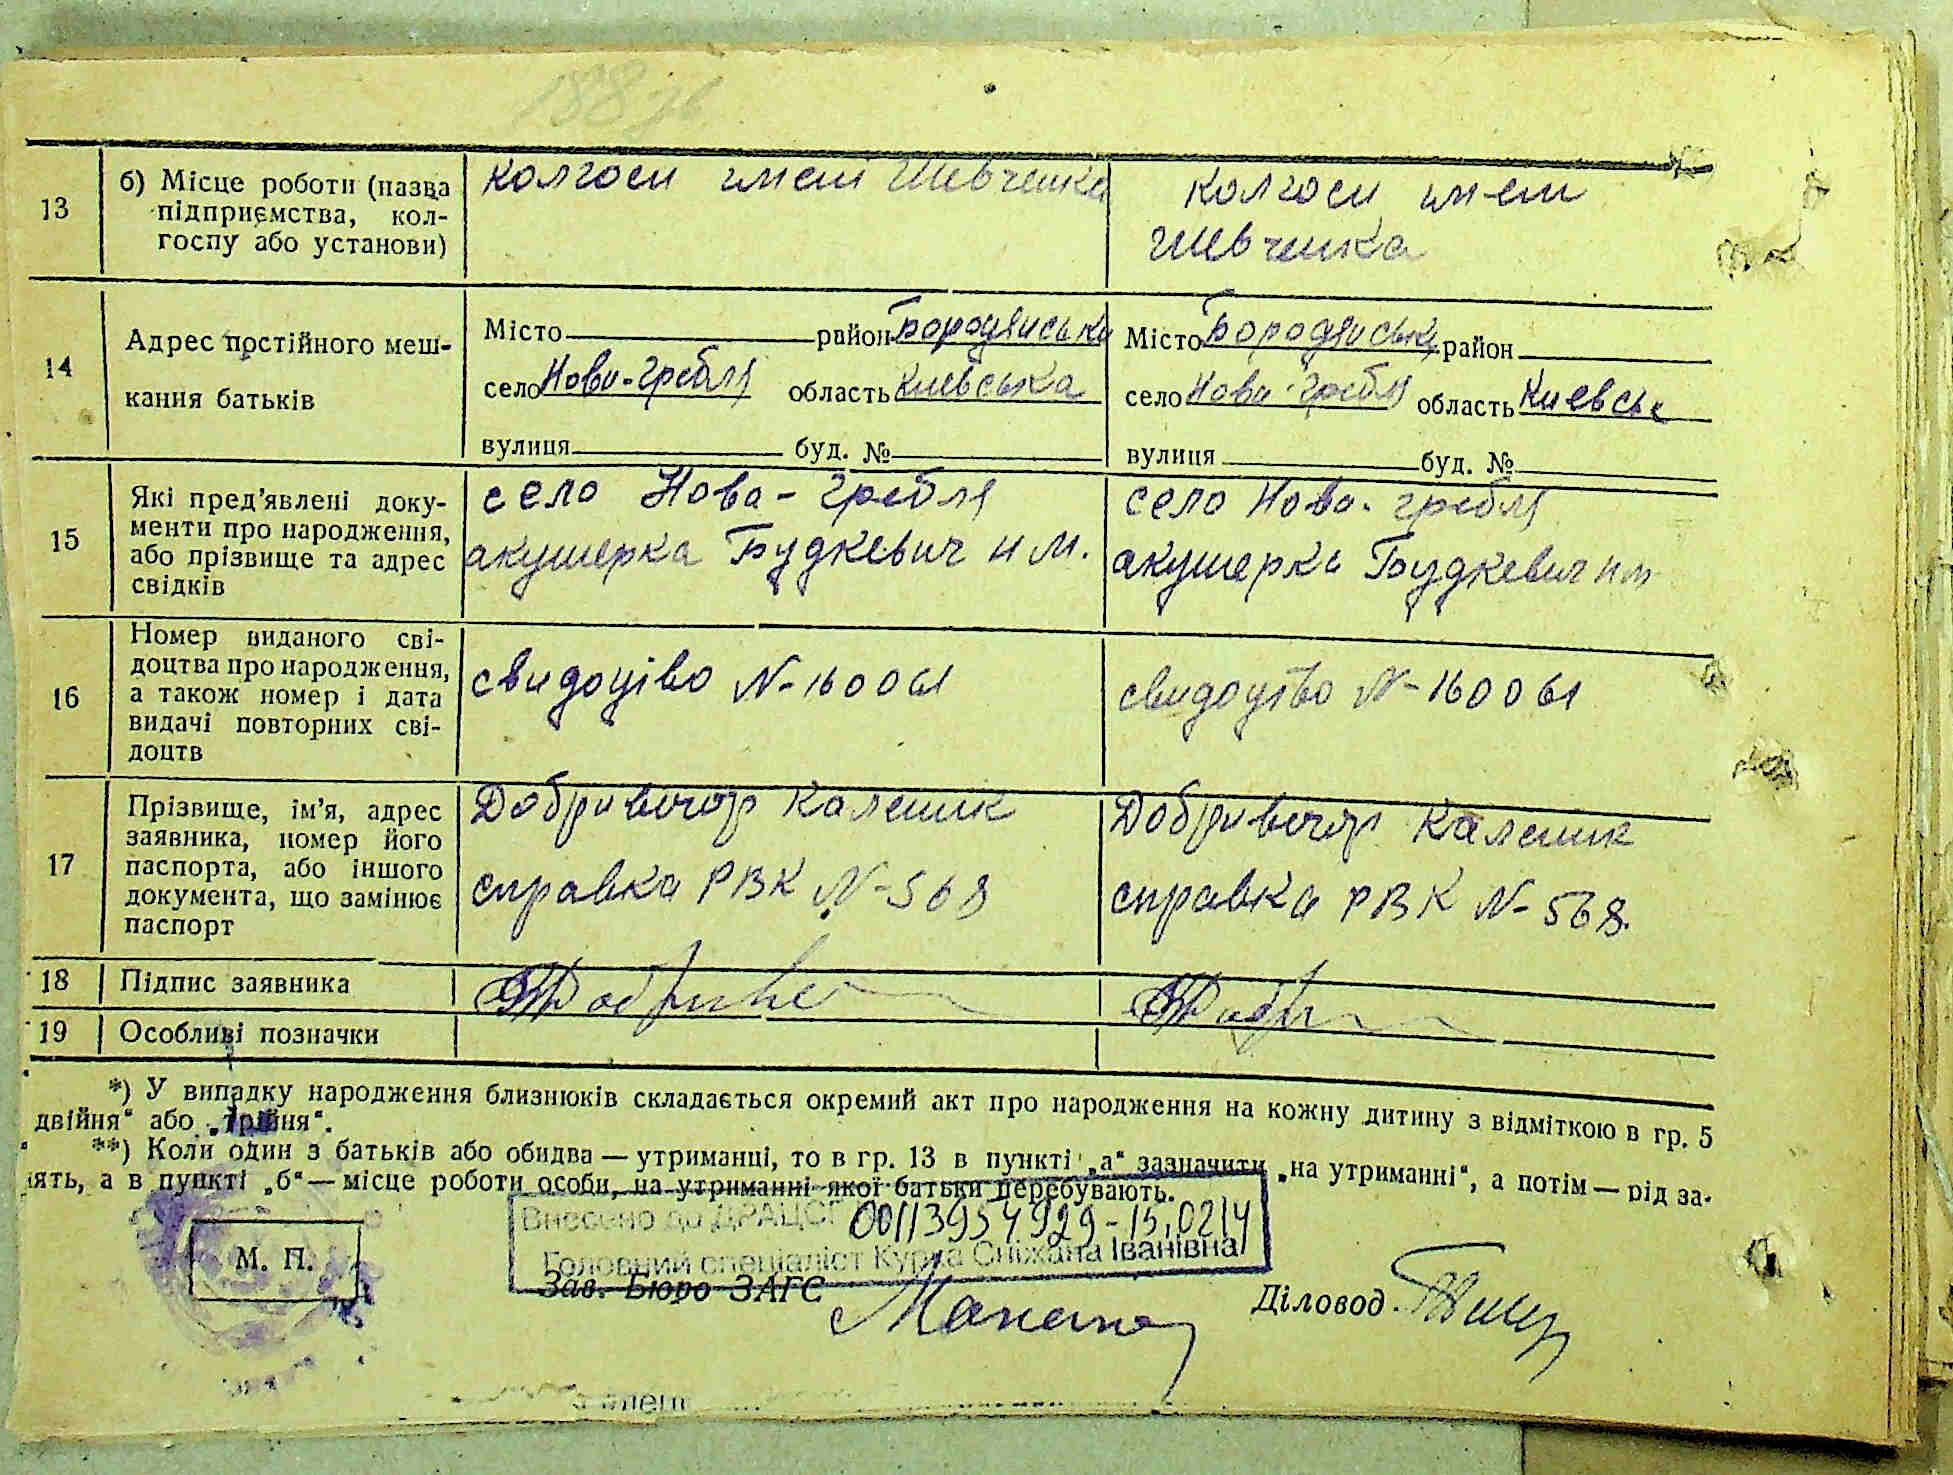 13
б) Місце роботи (назва
підприємства, кол-
госпу або установи)
колгосп імені Шевченка
колгосп імені
Шевченка
14
Адрес постійного меш-
кання батьків
Місто район Бородянська
село Нова-Гребля область Киевська
вулиця буд. №
Місто Бородянська район
село Нова-Гребля область Киевськ
вулиця буд. №
15
Які пред'явлені доку-
менти про народження,
або прізвище та адрес
свідків
село Нова-гребля
акушерка Будкевич н М.
село Нова-гребля
акушерка Будкевич н м
16
Номер виданого сві-
доцтва про народження,
а також номер і дата
видачі повторних сві-
доцтв
свидоцтво №-160061
свидоцтво №-160061
17
Прізвище, ім'я, адрес
заявника, номер його
паспорта, або іншого
документа, що замінює
паспорт
Добривечор Каленик
справка РВК №-568
Добривечор Каленик
справка РВК №-568.
18
Підпис заявника
19
Особливі позначки
*) У випадку народження близнюків складається окремий акт про народження на кожну дитину з відміткою в гр. 5
двійня" або „трійня".
**) Коли один з батьків або обидва — утриманці, то в гр. 13 в пункті „а" зазначити „на утриманні", а потім — рід за-
ять, а в пункті „б" — місце роботи особи, на утриманні якої батьки перебувають.
Внесено до ДРАЦСГ 00113954929-15.02.14
Головний спеціаліст Курка Сніжана Іванівна
М. П.
Зав. Бюро ЗАГС
Діловод